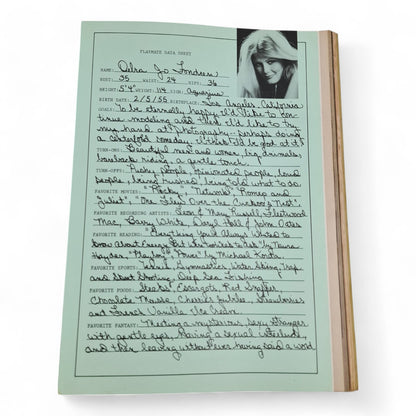 PLAYMATE DATA SHEET
NAME: Debra Jo Fondren
BUST: 35 WAIST: 24 HIPS: 36
HEIGHT: 5'4" WEIGHT: 114 SIGN: Aquarius
BIRTH DATE: 2/5/55 BIRTHPLACE: Los Angeles, California
GOALS: To be eternally happy. I'd like to con-
tinue modeling and I'd like to try
my hand at photography - perhaps doing
a centerfold someday. I think I'd be good at it
TURN-ONS: Beautiful men and women, big animals,
bareback riding, a gentle touch.
TURN-OFFS: Pushy people, opinionated people, loud
people, being rushed, being told what to do.
FAVORITE MOVIES: "Rocky", "Network", "Romeo and
Juliet", "One Flew Over the Cuckoo's Nest".
FAVORITE RECORDING ARTISTS: Leon & Mary Russell, Fleetwood
Mac, Barry White, Daryl Hall & John Oates
FAVORITE READING: "Everything You've Always Wanted to
Know About Energy But Were too Weak to Ask" by Naura
Hayden, "Playboy", "Power" by Michael Korda
FAVORITE SPORTS: Tennis, Gymnastics, Water Skiing, Trap
and Skeet Shooting, Deep Sea Fishing
FAVORITE FOODS: Steaks, Escargots, Red Snapper
Chocolate Mousse, Cherries Jubilee, Strawberries
and French Vanilla Ice Cream
FAVORITE FANTASY: Meeting a mysterious, sexy stranger
with gentle eyes, having a sexual interlude,
and then leaving without ever having said a word